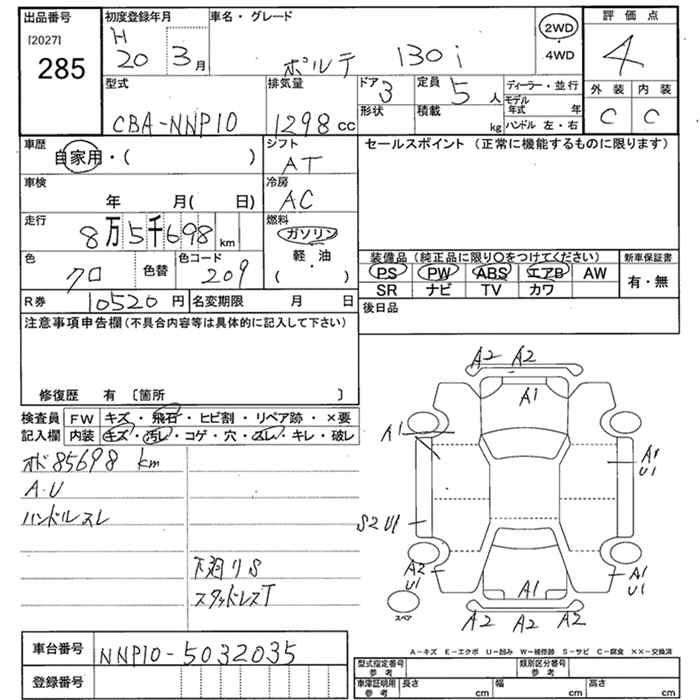 出品番号
[2027]
285
初度登録年月
H 20 3月
車名・グレード
ポルテ 130i
2WD
・
4WD
評価点
4
外装 内装
C C
型式
CBA-NNP10
排気量
1298cc
ドア 3
形状
定員 5人
積載 kg
ディーラー・並行
モデル年式 年
ハンドル 左・右
車歴
自家用・( )
シフト
AT
セールスポイント (正常に機能するものに限ります)
車検
年 月( 日)
冷房
AC
走行
8万5千698km
燃料
ガソリン
軽・油
・
( )
色
クロ
色替
色コード
209
装備品(純正品に限り○をつけてください)
PS PW ABS エアB AW
SR ナビ TV カワ
新車保証書
有・無
R券 10520円
名変期限 月 日
後日品
注意事項申告欄(不具合内容等は具体的に記入して下さい)
修復歴 有 〔箇所 〕
検査員 FW キズ・飛石・ヒビ割・リペア跡・×要
記入欄 内装 キズ・汚レ・コゲ・穴・スレ・キレ・破レ
オド85698km
A.U
ハンドルスレ
下廻りS
スタッドレスT
A2 A2
A1
A1
A1
U1
S2 U1
A2
U1
A1
U1
A1
A2 A2 A2
スペア
A-キズ E-エクボ U-凹み W-補修跡 S-サビ C-腐食 XX-交換済
車台番号 NNP10-5032035
登録番号
型式指定番号
参考
類別区分番号
参考
車庫証明用
参考
長さ cm
幅 cm
高さ cm